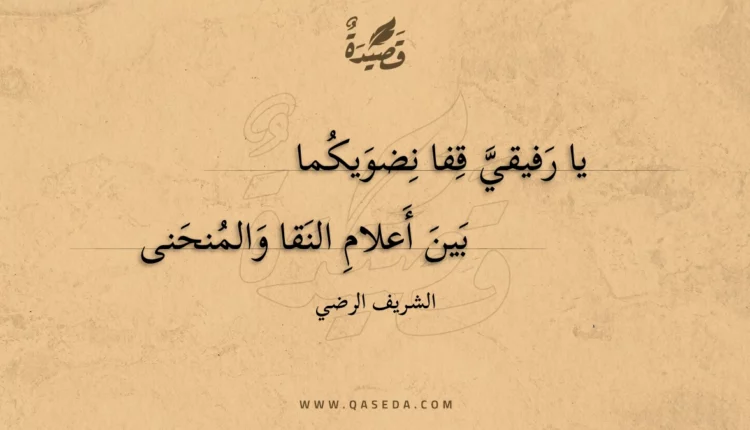 قَصِيْدَةٌ
يا رَفيقيَّ قِفا نِضوَيكُما
بَينَ أَعلامِ النَقا وَالمُنحَنى
الشريف الرضي
WWW.QASEDA.COM